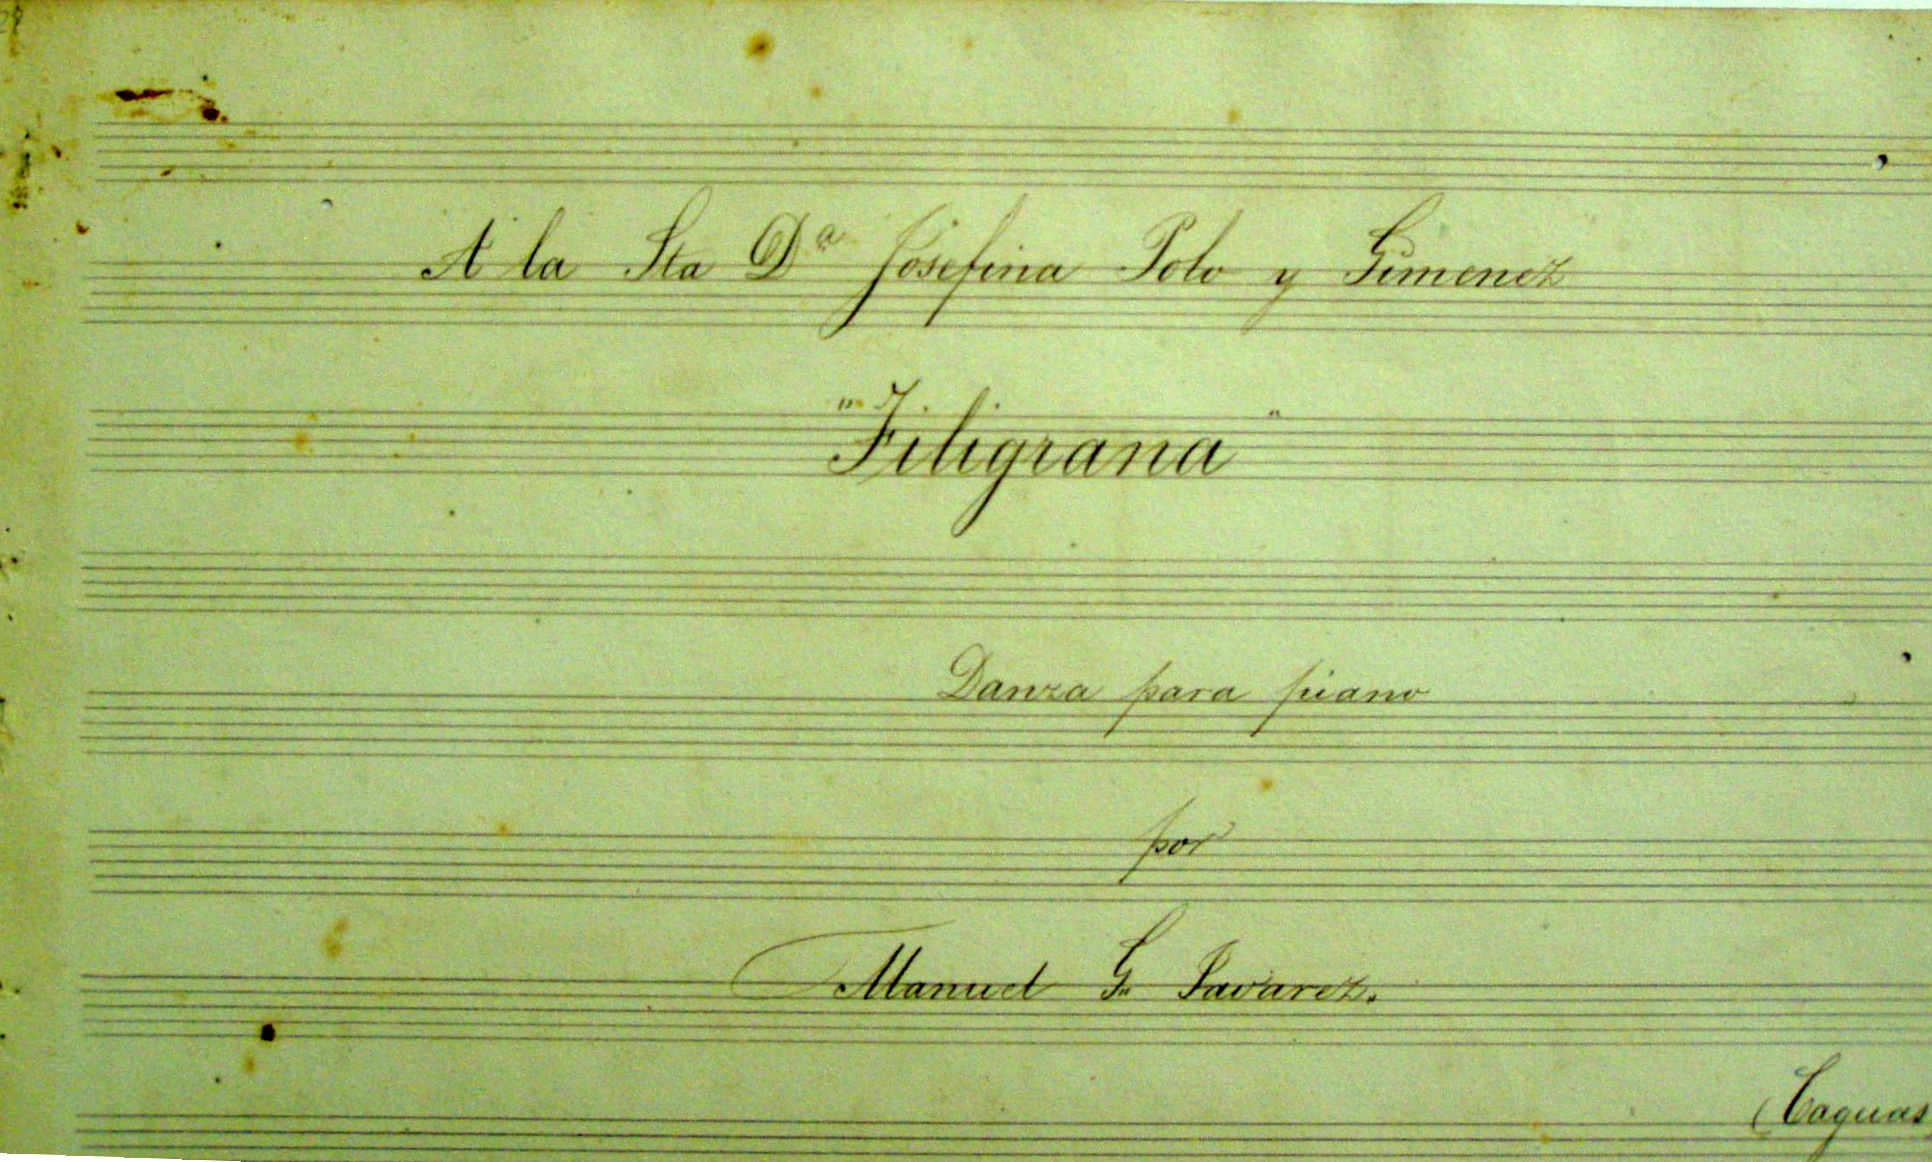 A la Sta Dª Josefina Polo y Gimenez
"Filigrana"
Danza para piano
por
Manuel G. Tavarez.
(Caguas